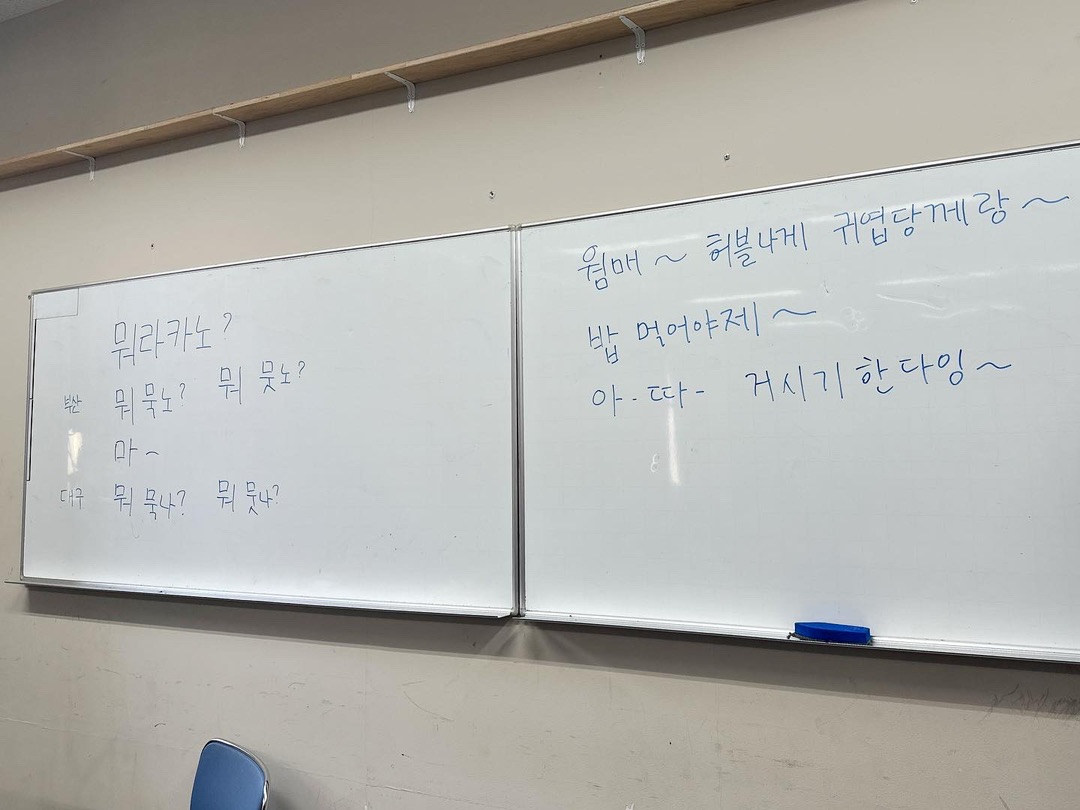 뭐라카노?
부산 뭐 묵노? 뭐 뭇노?
마~
대구 뭐 묵나? 뭐 뭇나?
웜매~ 허블나게 귀엽당께랑~
밥 먹어야제~
아-따- 거시기한다잉~